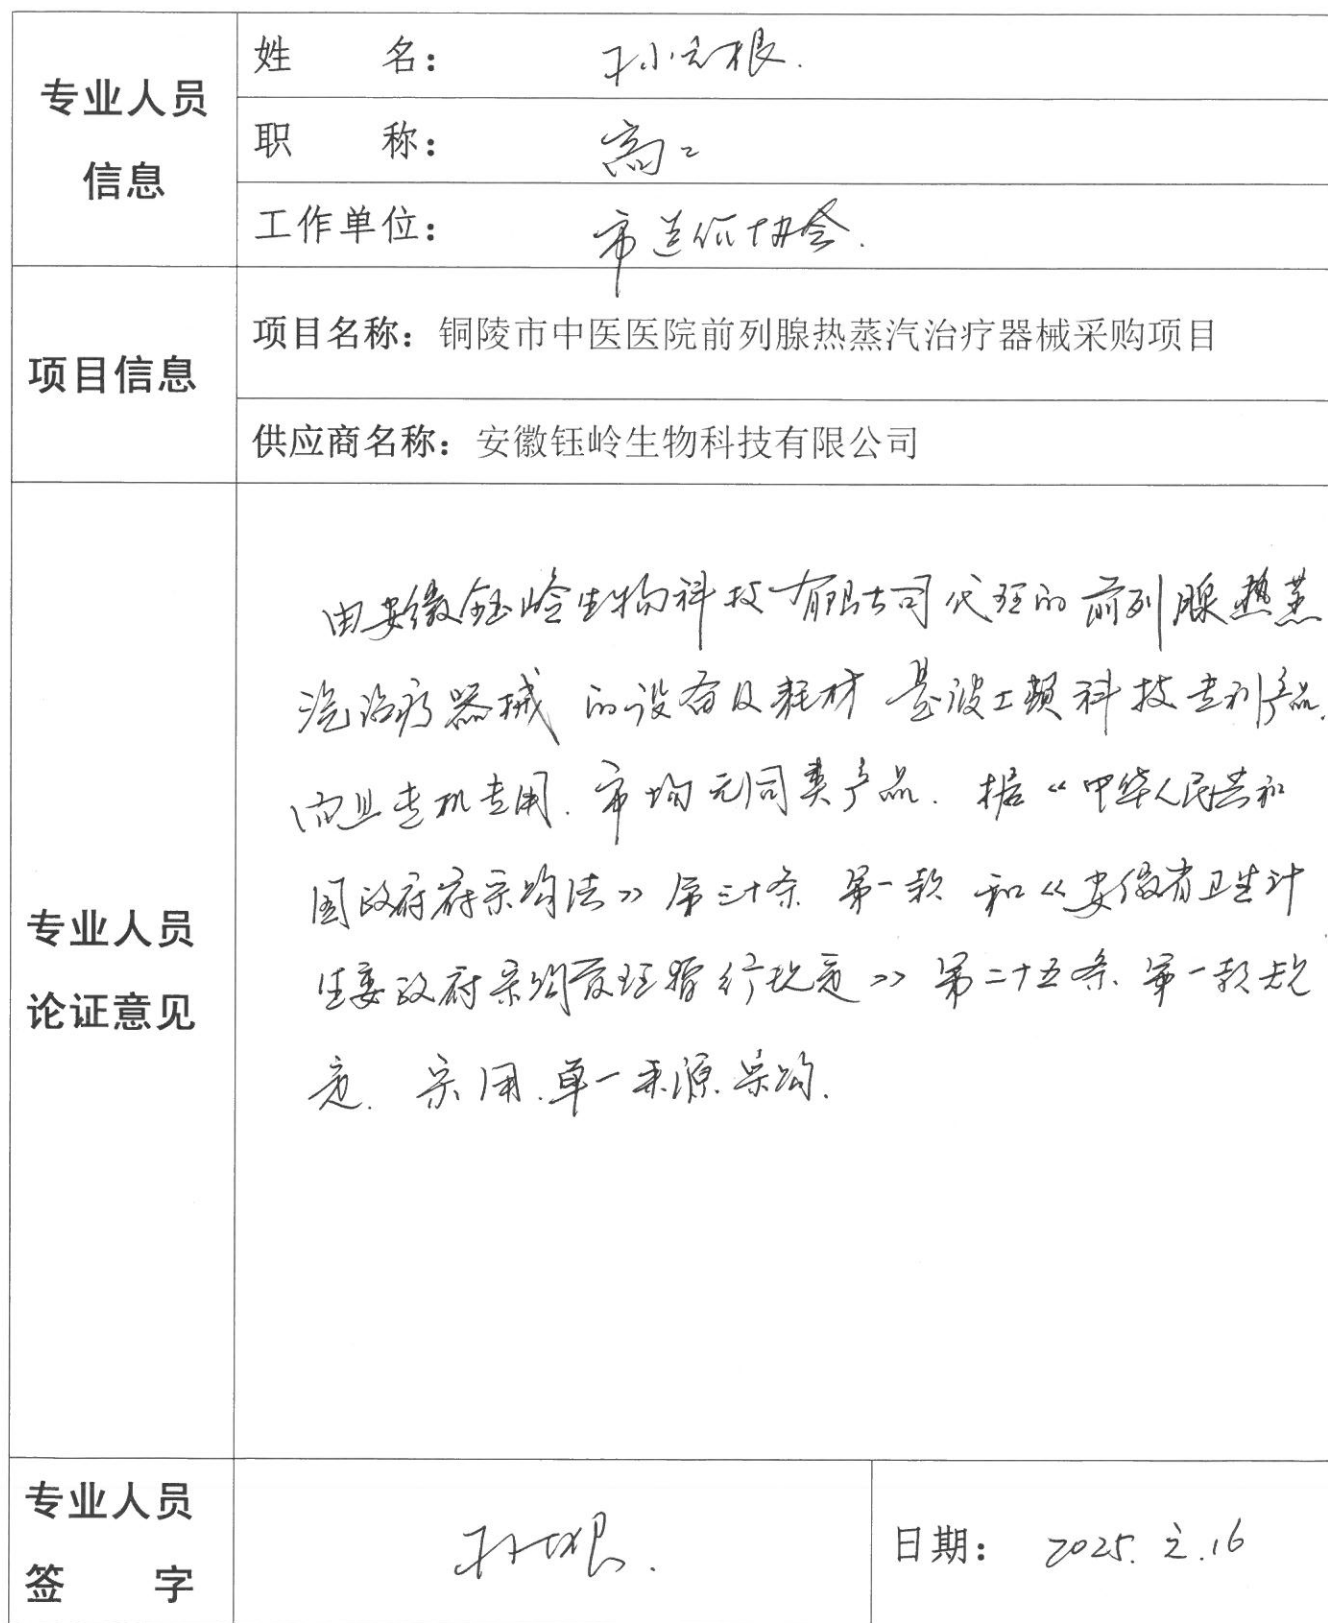 专业人员
信息
姓 名： 孙之根.
职 称： 高工
工作单位： 市造价协会.
项目信息
项目名称：铜陵市中医医院前列腺热蒸汽治疗器械采购项目
供应商名称：安徽钰岭生物科技有限公司
专业人员
论证意见
由安徽钰岭生物科技有限公司代理的前列腺热蒸
汽治疗器械的设备及耗材是波士顿科技专利产品.
而且专机专用.市场无同类产品.据《中华人民共和
国政府府采购法》第三十条第一款和《安徽省卫生计
生委政府采购管理暂行规定》第二十五条.第一款规
定.采用.单一来源.采购.
专业人员
签 字
日期： 2025.2.16